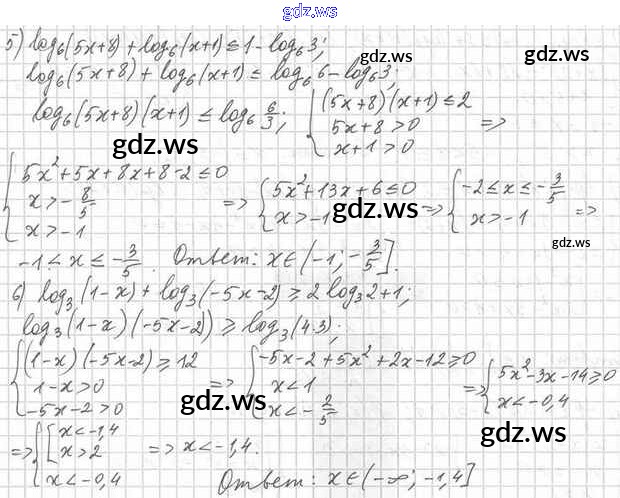 gdz.ws
5) log₆(5x+8) + log₆(x+1) ≤ 1 - log₆3;
gdz.ws
log₆(5x+8) + log₆(x+1) ≤ log₆6 - log₆3;
gdz.ws
log₆(5x+8)(x+1) ≤ log₆ 6/3; { (5x+8)(x+1) ≤ 2
5x+8 > 0 =>
x+1 > 0
gdz.ws
{ 5x²+5x+8x+8-2 ≤ 0
x > -8/5 => { 5x²+13x+6 ≤ 0 => { -2 ≤ x ≤ -3/5
x > -1 x > -1 x > -1 =>
gdz.ws
gdz.ws
-1 < x ≤ -3/5. Ответ: x∈(-1; -3/5].
6) log₃(1-x) + log₃(-5x-2) ≥ 2log₃2+1;
log₃(1-x)(-5x-2) ≥ log₃(4·3);
{ (1-x)(-5x-2) ≥ 12 { -5x-2+5x²+2x-12 ≥ 0
1-x > 0 => x < 1 => { 5x²-3x-14 ≥ 0
-5x-2 > 0 x < -2/5 x < -0,4
gdz.ws
=> { [ x < -1,4
x > 2 => x < -1,4.
gdz.ws
x < -0,4 Ответ: x∈(-∞; -1,4]